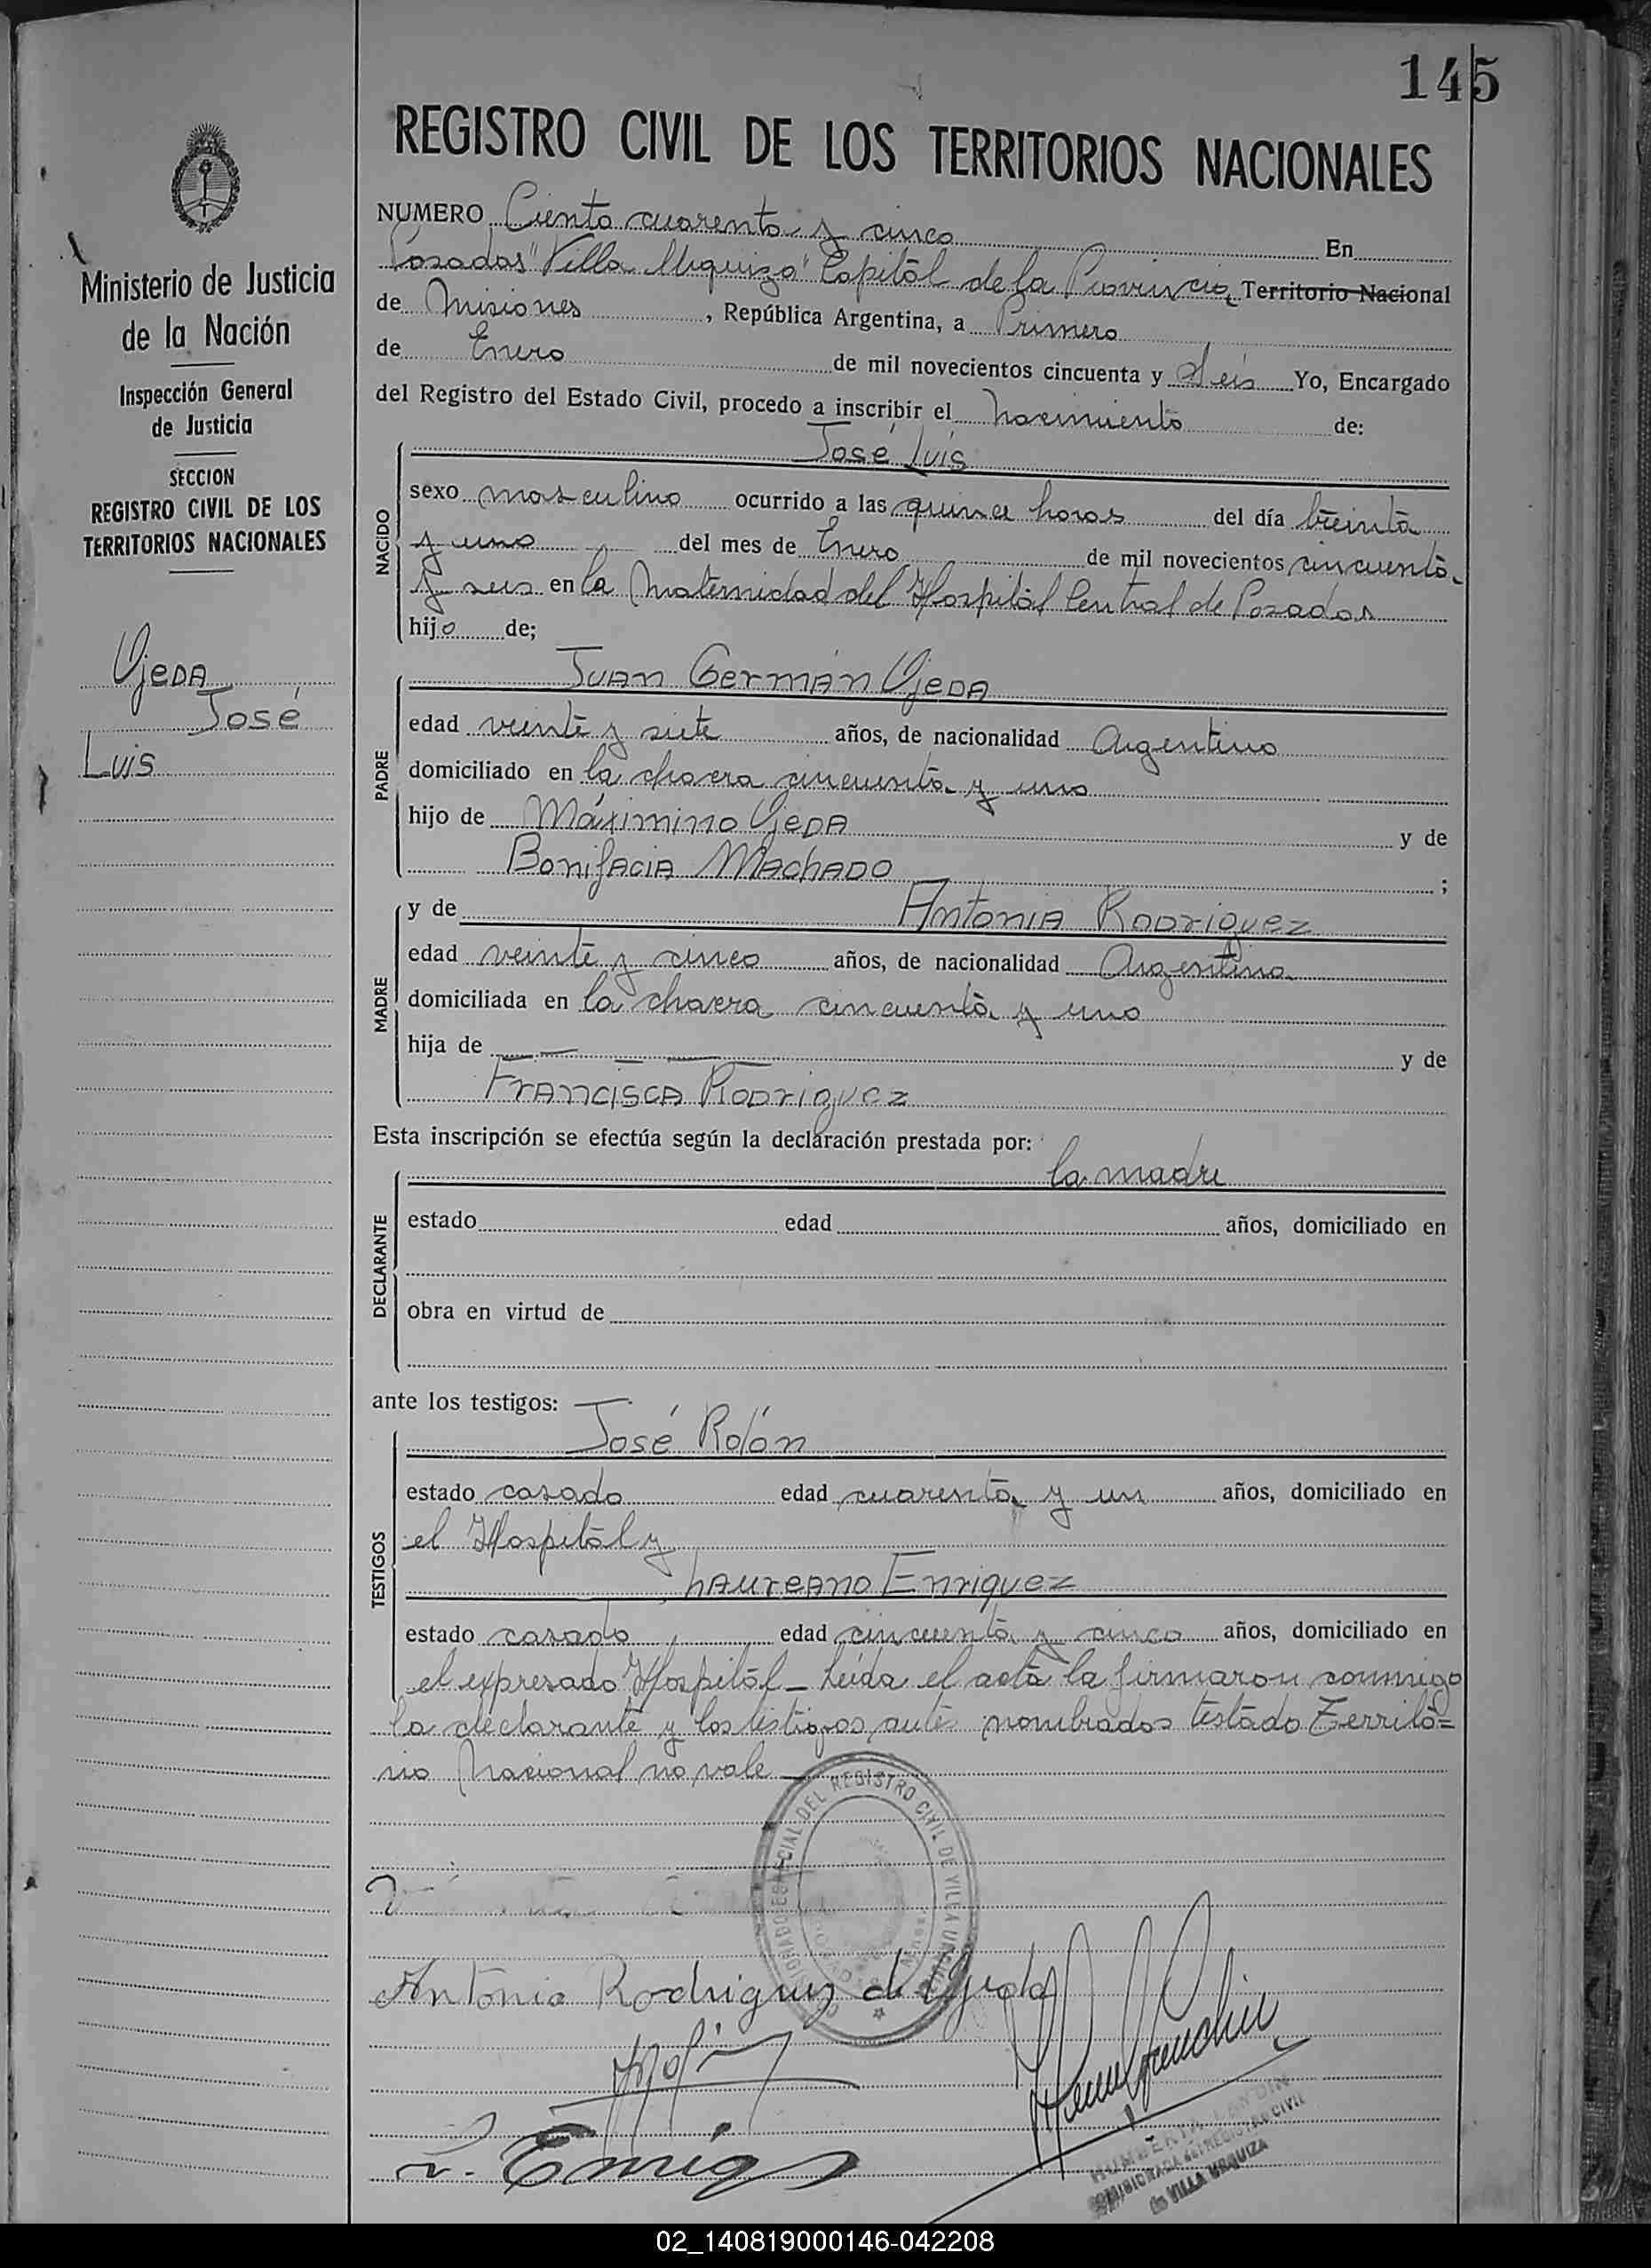 145
REGISTRO CIVIL DE LOS TERRITORIOS NACIONALES
Ministerio de Justicia
de la Nación
Inspección General
de Justicia
SECCION
REGISTRO CIVIL DE LOS
TERRITORIOS NACIONALES
Ojeda
José
Luis
NUMERO Ciento cuarenta y cinco En
Posadas "Villa Urquiza" Capital de la Provincia, Territorio Nacional
de Misiones, República Argentina, a Primero
de Enero de mil novecientos cincuenta y Seis Yo, Encargado
del Registro del Estado Civil, procedo a inscribir el Nacimiento de:
NACIDO
José Luis
sexo masculino ocurrido a las quince horas del día treinta
y uno del mes de Enero de mil novecientos cincuenta
y seis en la Maternidad del Hospital Central de Posadas
hijo de;
PADRE
Juan Germán Ojeda
edad veinte y siete años, de nacionalidad Argentino
domiciliado en la chacra cincuenta y uno
hijo de Máximino Ojeda y de
Bonifacia Machado ;
MADRE
y de Antonia Rodriguez
edad veinte y cinco años, de nacionalidad Argentina
domiciliada en la chacra cincuenta y uno
hija de — — — y de
Francisca Rodriguez
Esta inscripción se efectúa según la declaración prestada por:
DECLARANTE
la madre
estado edad años, domiciliado en
obra en virtud de
ante los testigos:
TESTIGOS
José Rolón
estado casado edad cuarenta y un años, domiciliado en
el Hospital y
Laureano Enriquez
estado casado edad cincuenta y cinco años, domiciliado en
el expresado Hospital - Leída el acta la firmaron conmigo
la declarante y los testigos ante nombrados testado Territo=
rio Nacional no vale —
REGISTRO CIVIL DE VILLA URQUIZA
Antonia Rodriguez de Ojeda
REGISTRO CIVIL
de VILLA URQUIZA
02_140819000146-042208